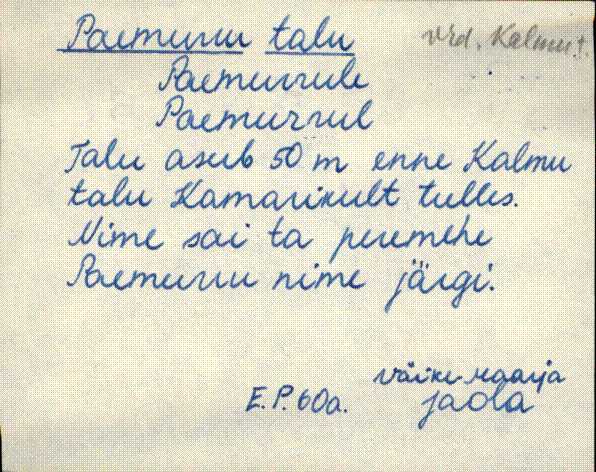 Paemurru talu vrd. Kalmu t.
Paemurrule
Paemurrul
Talu asub 50 m enne Kalmu
talu Kamarikult tulles.
Nime sai ta peremehe
Paemurru nime järgi.
Väike-Maarja
E.P. 60a. Jaola